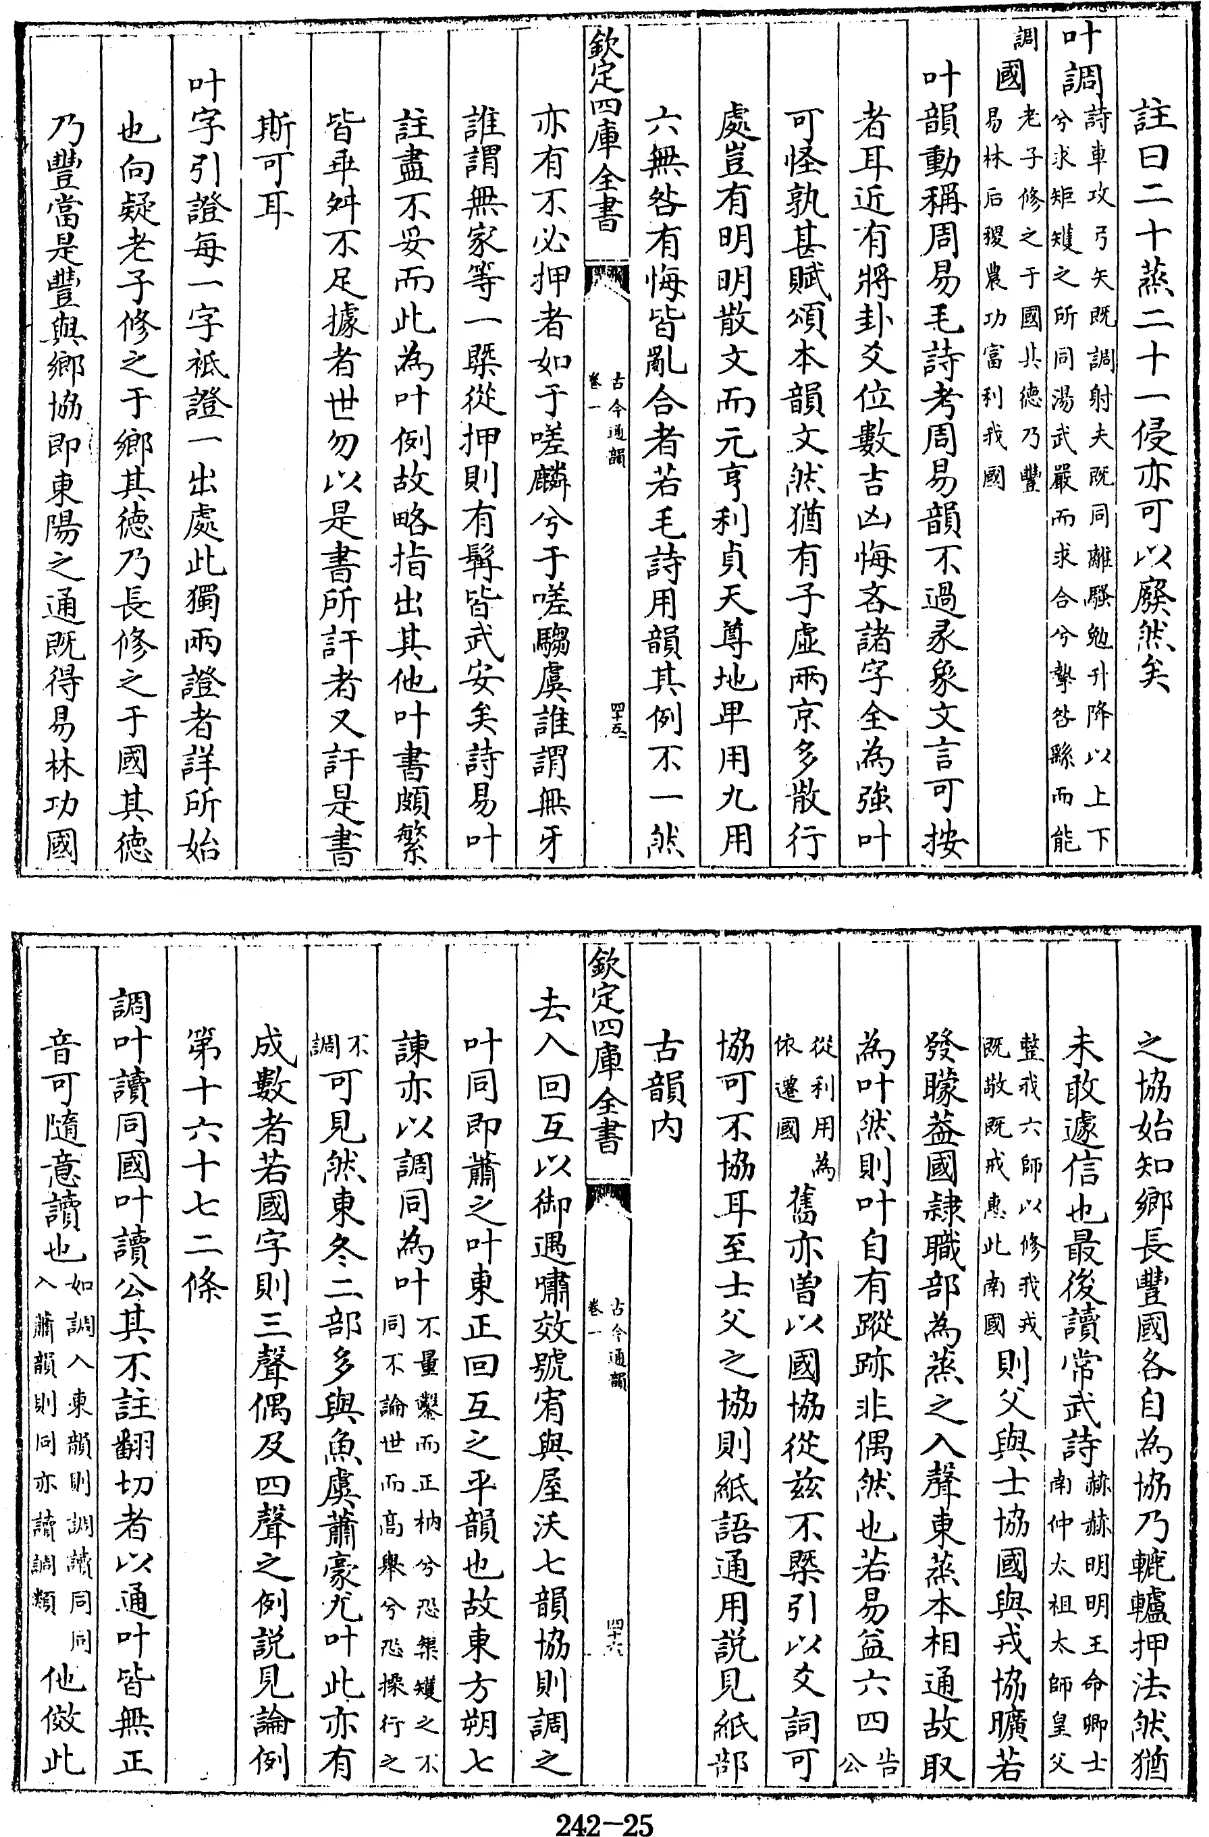 註曰二十蒸二十一侵亦可以廢然矣
叶調詩車攻弓矢既調射夫既同離騷勉升降以上下
兮求矩矱之所同湯武嚴而求合兮摯咎繇而能
調國老子修之于國其德乃豐
易林后稷農功富利我國
叶韻動稱周易毛詩考周易韻不過彖象文言可按
者耳近有將卦爻位數吉凶悔吝諸字全為強叶
可怪孰甚賦頌本韻文然猶有子虛兩京多散行
處豈有明明散文而元亨利貞天尊地卑用九用
六無咎有悔皆亂合者若毛詩用韻其例不一然
欽定四庫全書
古今通韻
卷一
四十五
亦有不必押者如于嗟麟兮于嗟騶虞誰謂無牙
誰謂無家等一槩從押則有髯皆武安矣詩易叶
註盡不妥而此為叶例故略指出其他叶書頗繁
皆乖舛不足據者世勿以是書所訐者又訐是書
斯可耳
叶字引證每一字祗證一出處此獨兩證者詳所始
也向疑老子修之于鄉其德乃長修之于國其德
乃豐當是豐與鄉協即東陽之通既得易林功國
之協始知鄉長豐國各自為協乃轆轤押法然猶
未敢遽信也最後讀常武詩赫赫明明王命卿士
南仲太祖太師皇父
整我六師以修我戎
既敬既戒惠此南國則父與士協國與戎協曠若
發矇葢國隷職部為蒸之入聲東蒸本相通故取
為叶然則叶自有蹤跡非偶然也若易益六四告
公
從利用為
依遷國舊亦曾以國協從兹不槩引以爻詞可
協可不協耳至士父之協則紙語通用説見紙部
古韻内
欽定四庫全書
古今通韻
卷一
四十六
去入回互以御遇嘯效號宥與屋沃七韻協則調之
叶同即蕭之叶東正回互之平韻也故東方朔七
諫亦以調同為叶不量鑿而正枘兮恐榘矱之不
同不論世而高舉兮恐操行之
不
調可見然東冬二部多與魚虞蕭豪尤叶此亦有
成數者若國字則三聲偶及四聲之例説見論例
第十六十七二條
調叶讀同國叶讀公其不註翻切者以通叶皆無正
音可隨意讀也如調入東韻則調讀同同
入蕭韻則同亦讀調類他倣此
242-25